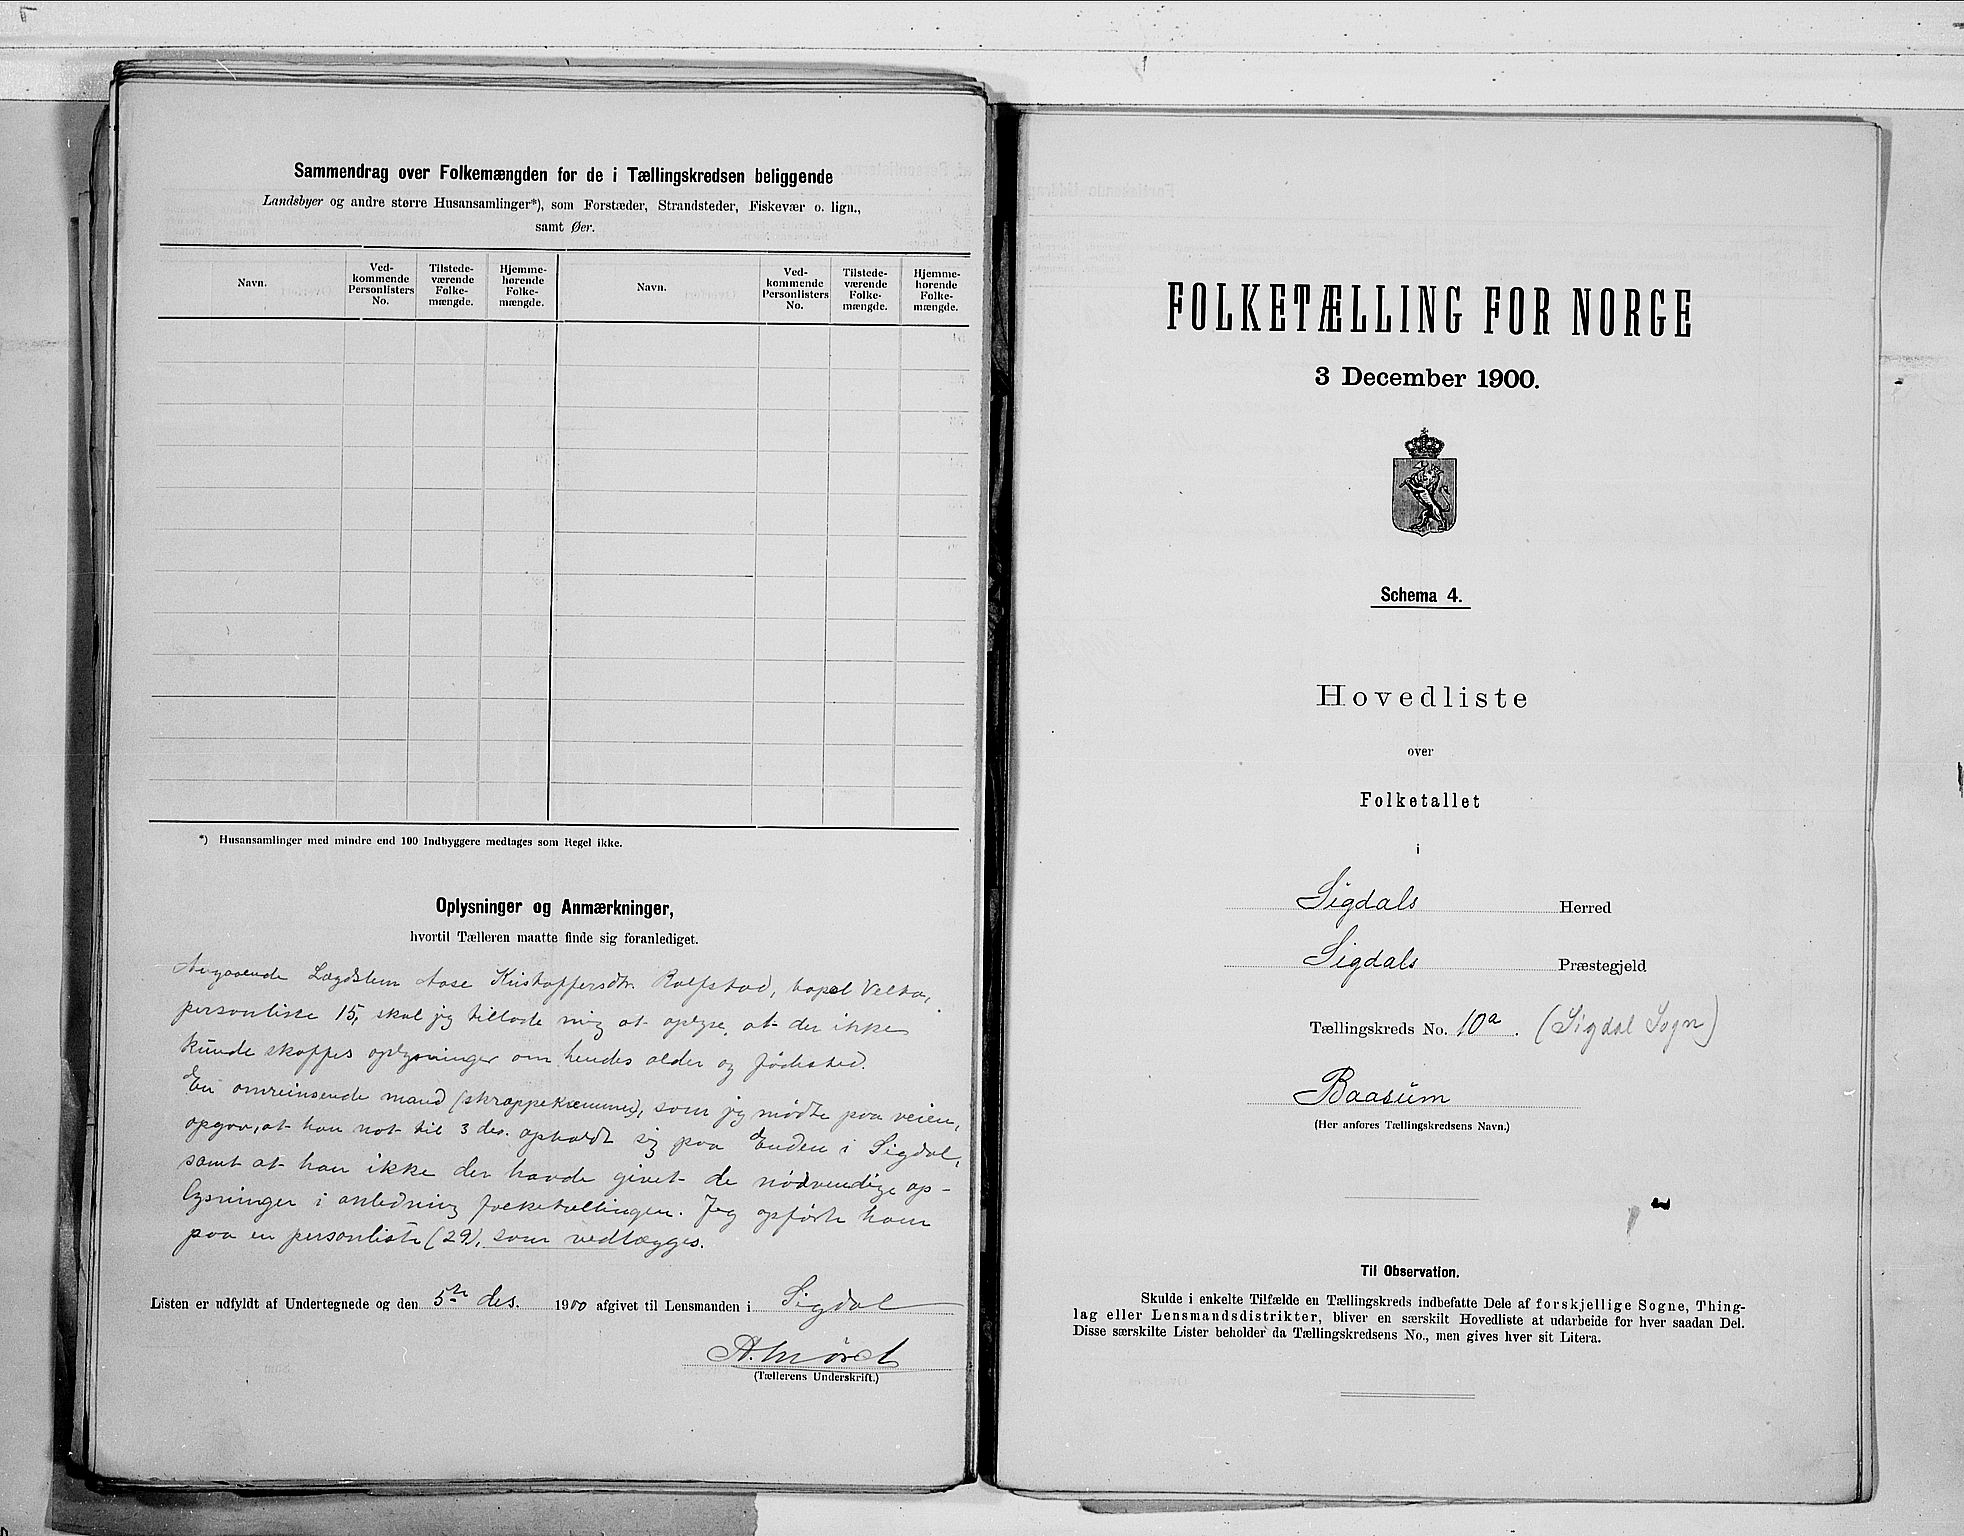 Sammendrag over Folkemængden for de i Tællingskredsen beliggende
Landsbyer og andre større Husansamlinger*), som Forstæder, Strandsteder, Fiskevær o. lign.,
samt Øer.
Navn.
Ved-
kommende
Personlisters
No.
Tilstede-
værende
Folke-
mængde.
Hjemme-
hørende
Folke-
mængde.
Navn.
Ved-
kommende
Personlisters
No.
Tilstede-
værende
Folke-
mængde.
Hjemme-
hørende
Folke-
mængde.
*) Husansamlinger med mindre end 100 Indbyggere medtages som Regel ikke.
Oplysninger og Anmærkninger,
hvortil Tælleren maatte finde sig foranlediget.
Angaaende Lægdslem Aase Kristoffersdtr. Rolfstad, Velta,
personliste 15, skal jeg tillade mig at oplyse, at der ikke
kunde skaffes oplysninger om hendes alder og fødested.
En omreinsende mand (skrappekræmmer), som jeg mødte paa veien,
opgav, at han nat til 3 des. opholdt sig paa Enden i Sigdal,
samt at han ikke der havde givet de nødvendige op-
lysninger i anledning folketællingen. Jeg opførte ham
paa en personliste (29), som vedlægges.
Listen er udfyldt af Undertegnede og den 5te des. 1900 afgivet til Lensmanden i Sigdal
A. Mørch
(Tællerens Underskrift.)
FOLKETÆLLING FOR NORGE
3 December 1900.
Schema 4.
Hovedliste
over
Folketallet
i
Sigdals Herred
Sigdals Præstegjeld
Tællingskreds No. 10a. (Sigdal Sogn)
Baasum
(Her anføres Tællingskredsens Navn.)
Til Observation.
Skulde i enkelte Tilfælde en Tællingskreds indbefatte Dele af forskjellige Sogne, Thing-
lag eller Lensmandsdistrikter, bliver en særskilt Hovedliste at udarbeide for hver saadan Del.
Disse særskilte Lister beholder da Tællingskredsens No., men gives hver sit Litera.